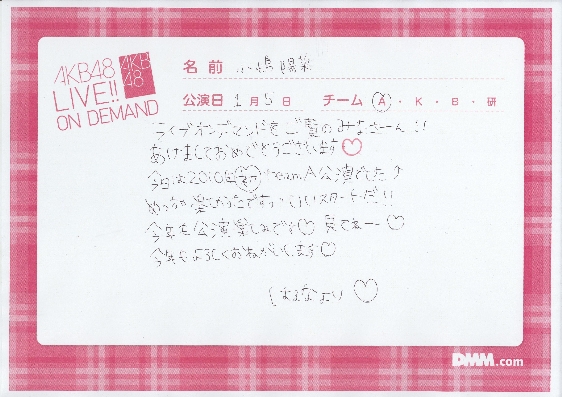 AKB48
LIVE!!
ON DEMAND
AKB
48
名前 小嶋陽菜
公演日 1月5日 チーム A・K・B・研
ライブオンデマンドをご覧のみなさーん!!
あけましておめでとうございます♡
今日は2010年初 team A公演でした♪
めっちゃ楽しかったです いいスタートだ!!
今年も公演楽しみです♡ 見てねー♡
今年もよろしくおねがいします♡
(はるなより♡
DMM.com